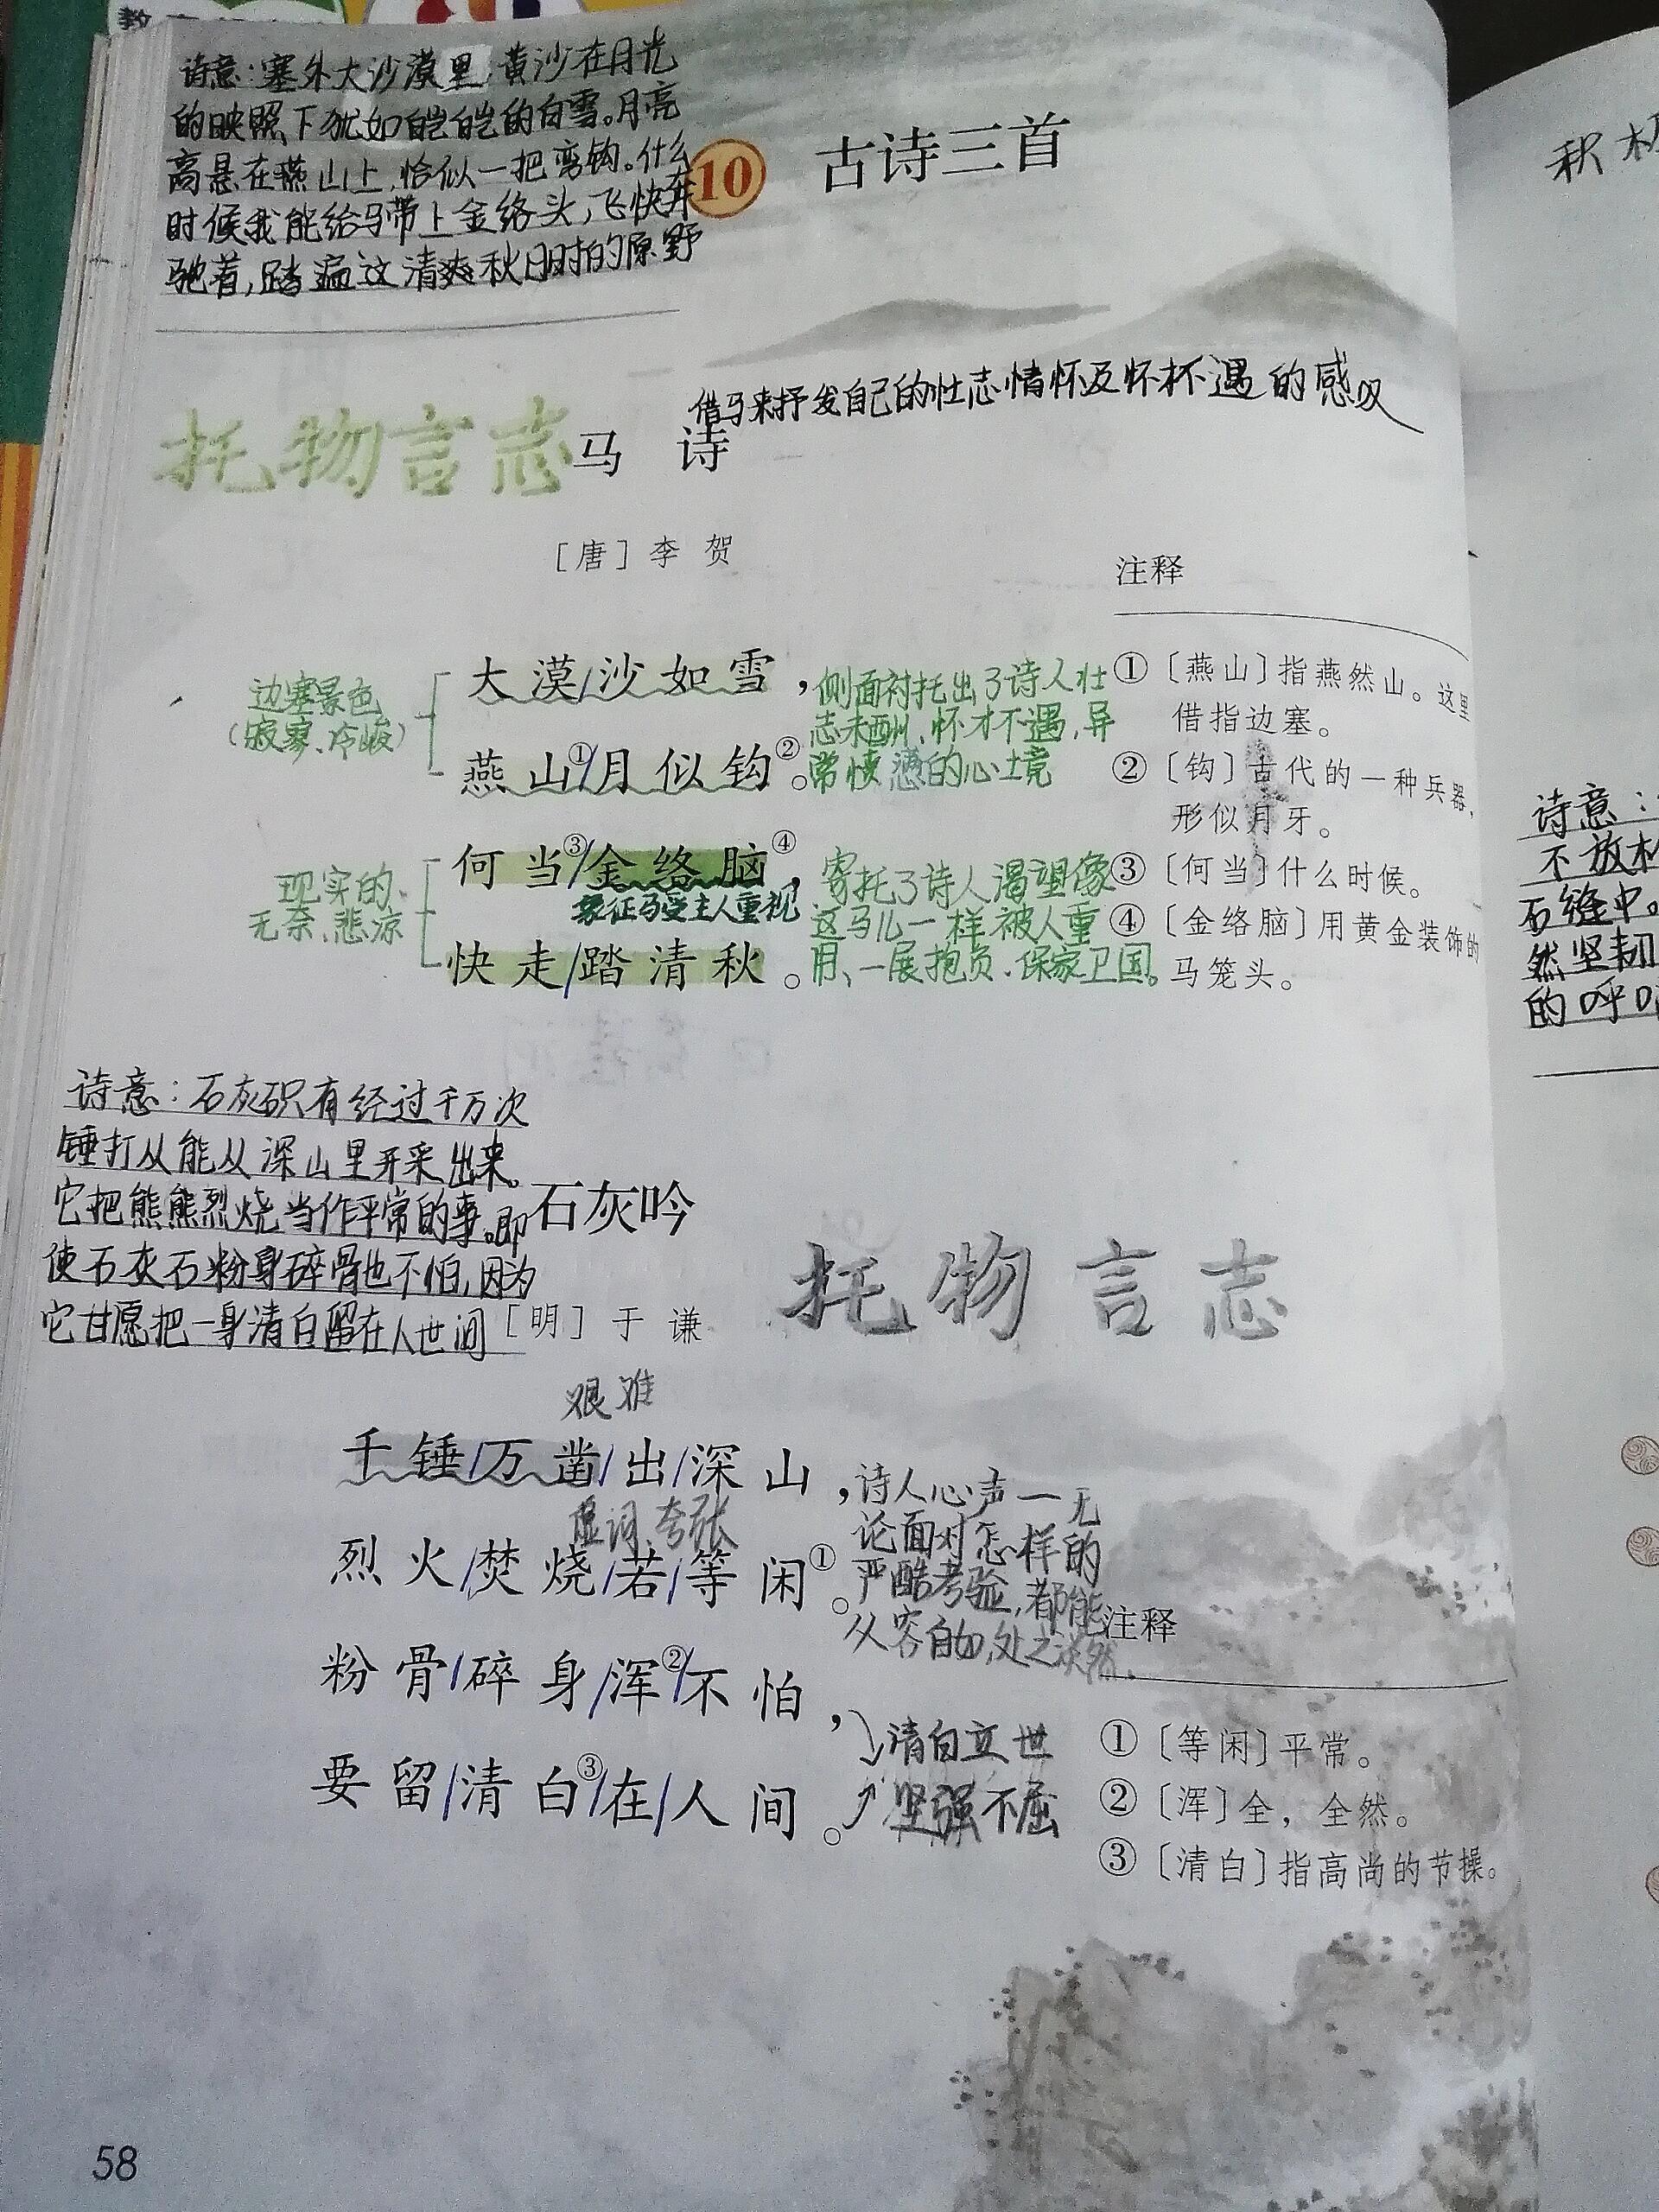 诗意:塞外大沙漠里,黄沙在月光
的映照下犹如皑皑的白雪。月亮
高悬在燕山上,恰似一把弯钩。什么
时候我能给马带上金络头,飞快奔
驰着,踏遍这清爽秋日时的原野
10 古诗三首
积极
借马来抒发自己的壮志情怀及怀杯遇的感叹
托物言志
马 诗
[唐] 李 贺
边塞景色
(寂寥、冷峻)
大漠/沙如雪,
燕山①/月似钩②。
侧面衬托出了诗人壮
志未酬、怀才不遇,异
常愤懑的心境
现实的
无奈、悲凉
何当③/金络脑④,
象征马受主人重视
快走/踏清秋。
寄托了诗人渴望像
这马儿一样被人重
用、一展抱负、保家卫国。
注释
①〔燕山〕指燕然山。这里
借指边塞。
②〔钩〕古代的一种兵器,
形似月牙。
③〔何当〕什么时候。
④〔金络脑〕用黄金装饰的
马笼头。
诗意:
不放
石缝中。
然坚韧
的呼
诗意:石灰石只有经过千万次
锤打从能从深山里开采出来。
它把熊熊烈烧当作平常的事。即
使石灰石粉身碎骨也不怕,因为
它甘愿把一身清白留在人世间
石灰吟
[明] 于 谦
托物言志
艰难
千锤/万凿/出/深山,
虚词 夸张
烈火/焚烧/若/等闲①。
粉骨/碎身/浑②/不怕,
要留/清白③/在/人间。
诗人心声一无
论面对怎样的
严酷考验,都能
从容自如,处之淡然。
清白立世
坚强不屈
注释
①〔等闲〕平常。
②〔浑〕全,全然。
③〔清白〕指高尚的节操。
58